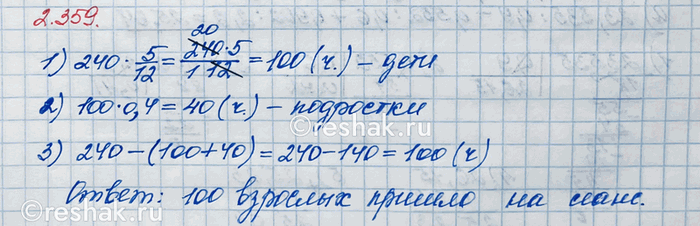 2.359.
1) 240 · 5/12 = 240·5/1 12 = 100 (ч.) – дети
20
2) 100·0,4 = 40 (ч.) – подростки
©reshak.ru
3) 240 – (100+40) = 240 – 140 = 100 (ч)
Ответ: 100 взрослых пришло на сеанс.
©reshak.ru